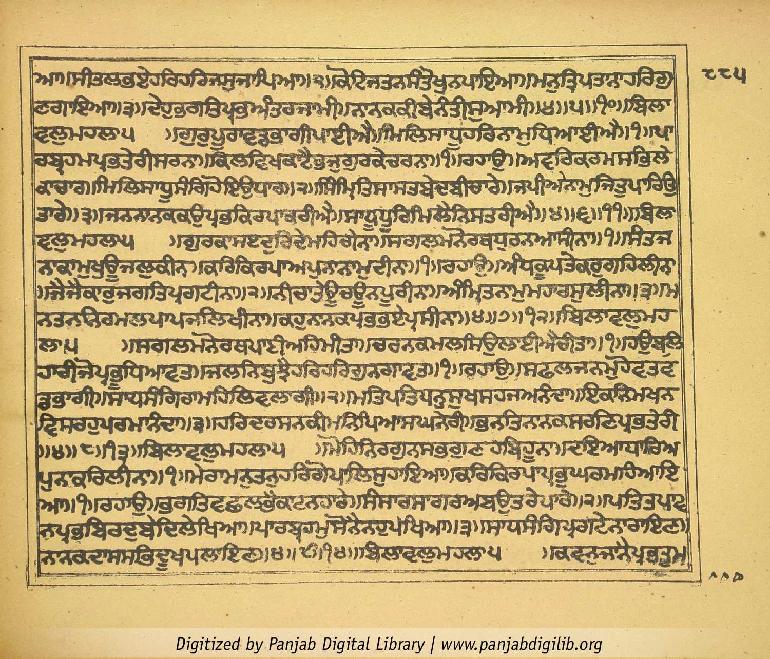 ਆ॥ਸੀਤਲਭਏਹਰਿਹਰਿਜਸੁਜਾਪਿਆ॥੨॥ਕੋਟਿਜਤਨਸੰਤੋਖੁਨਪਾਇਆ॥ਮਨੁਤ੍ਰਿਪਤਾਨਾਹਰਿਗੁ
ਣਗਾਇਆ॥੩॥ਦੇਹੁਭਗਤਿਪ੍ਰਭਅੰਤਰਜਾਮੀ॥ਨਾਨਕਕੀਬੇਨੰਤੀਸੁਆਮੀ॥੪॥੫॥੧੦॥ਬਿਲਾ
ਵਲੁਮਹਲਾ੫ ॥ਗੁਰੁਪੂਰਾਵਡਭਾਗੀਪਾਈਐ॥ਮਿਲਿਸਾਧੂਹਰਿਨਾਮੁਧਿਆਈਐ॥੧॥ਪਾ
ਰਬ੍ਰਹਮਪ੍ਰਭਤੇਰੀਸਰਨਾ॥ਕਿਲਬਿਖਕਾਟੈਭਜੁਗੁਰਕੇਚਰਨਾ॥੧॥ਰਹਾਉ॥ਅਵਰਿਕਰਮਸਭਿਲੋ
ਕਾਚਾਰ॥ਮਿਲਿਸਾਧੂਸੰਗਿਹੋਇਉਧਾਰ॥੨॥ਸਿੰਮ੍ਰਿਤਿਸਾਸਤਬੇਦਬੀਚਾਰੇ॥ਜਪੀਐਨਾਮੁਜਿਤੁਪਾਰਿਉ
ਤਾਰੇ॥੩॥ਜਨਨਾਨਕਕਉਪ੍ਰਭਕਿਰਪਾਕਰੀਐ॥ਸਾਧੂਧੂਰਿਮਿਲੈਨਿਸਤਰੀਐ॥੪॥੬॥੧੧॥ਬਿਲਾ
ਵਲੁਮਹਲਾ੫ ॥ਗੁਰਕਾਸਬਦੁਰਿਦੇਮਹਿਚੀਨਾ॥ਸਗਲਮਨੋਰਥਪੂਰਨਆਸੀਨਾ॥੧॥ਸੰਤਜ
ਨਾਕਾਮੁਖੁਊਜਲੁਕੀਨਾ॥ਕਰਿਕਿਰਪਾਅਪੁਨਾਨਾਮੁਦੀਨਾ॥੧॥ਰਹਾਉ॥ਅੰਧਕੂਪਤੇਕਰੁਗਹਿਲੀਨਾ
॥ਜੈਜੈਕਾਰੁਜਗਤਿਪ੍ਰਗਟੀਨਾ॥੨॥ਨੀਚਾਤੇਊਚਊਨਪੂਰੀਨਾ॥ਅੰਮ੍ਰਿਤਨਾਮੁਮਹਾਰਸੁਲੀਨਾ॥੩॥ਮ
ਨਤਨਨਿਰਮਲਪਾਪਜਲਿਖੀਨਾ॥ਕਹੁਨਾਨਕਪ੍ਰਭਭਏਪ੍ਰਸੀਨਾ॥੪॥੭॥੧੨॥ਬਿਲਾਵਲੁਮਹ
ਲਾ੫ ॥ਸਗਲਮਨੋਰਥਪਾਈਅਹਿਮੀਤਾ॥ਚਰਨਕਮਲਸਿਉਲਾਈਐਚੀਤਾ॥੧॥ਹਉਬਲਿ
ਹਾਰੀਜੋਪ੍ਰਭੂਧਿਆਵਤ॥ਜਲਨਿਬੁਝੈਹਰਿਹਰਿਗੁਨਗਾਵਤ॥੧॥ਰਹਾਉ॥ਸਫਲਜਨਮੁਹੋਵਤਵਡ
ਭਾਗੀ॥ਸਾਧਸੰਗਿਰਾਮਹਿਲਿਵਲਾਗੀ॥੨॥ਮਤਿਪਤਿਧਨੁਸੁਖਸਹਜਅਨੰਦਾ॥ਇਕਨਿਮਖਨ
ਵਿਸਰਹੁਪਰਮਾਨੰਦਾ॥੩॥ਹਰਿਦਰਸਨਕੀਮਨਿਪਿਆਸਘਨੇਰੀ॥ਭਨਤਿਨਾਨਕਸਰਣਿਪ੍ਰਭਤੇਰੀ
॥੪॥੮॥੧੩॥ਬਿਲਾਵਲੁਮਹਲਾ੫ ॥ਮੋਹਿਨਿਰਗੁਨਸਭਗੁਣਹਬਿਹੂਨਾ॥ਦਇਆਧਾਰਿਅ
ਪੁਨਾਕਰਿਲੀਨਾ॥੧॥ਮੇਰਾਮਨੁਤਨੁਹਰਿਗੋਪਾਲਿਸੁਹਾਇਆ॥ਕਰਿਕਿਰਪਾਪ੍ਰਭੁਘਰਮਹਿਆਇ
ਆ॥੧॥ਰਹਾਉ॥ਭਗਤਿਵਛਲਭੈਕਾਟਨਹਾਰੇ॥ਸੰਸਾਰਸਾਗਰਅਬਉਤਰੇਪਾਰੇ॥੨॥ਪਤਿਤਪਾਵ
ਨਪ੍ਰਭਬਿਰਦੁਬੇਦਿਲੇਖਿਆ॥ਪਾਰਬ੍ਰਹਮੁਸੋਨੈਨਹੁਪੇਖਿਆ॥੩॥ਸਾਧਸੰਗਿਪ੍ਰਗਟੇਨਾਰਾਇਣ॥
ਨਾਨਕਦਾਸਸਭਿਦੂਖਪਲਾਇਣ॥੪॥੯॥੧੪॥ਬਿਲਾਵਲੁਮਹਲਾ੫ ॥ਕਵਨੁਜਾਨੈਪ੍ਰਭਤੁਮ
Digitized by Panjab Digital Library | www.panjabdigilib.org